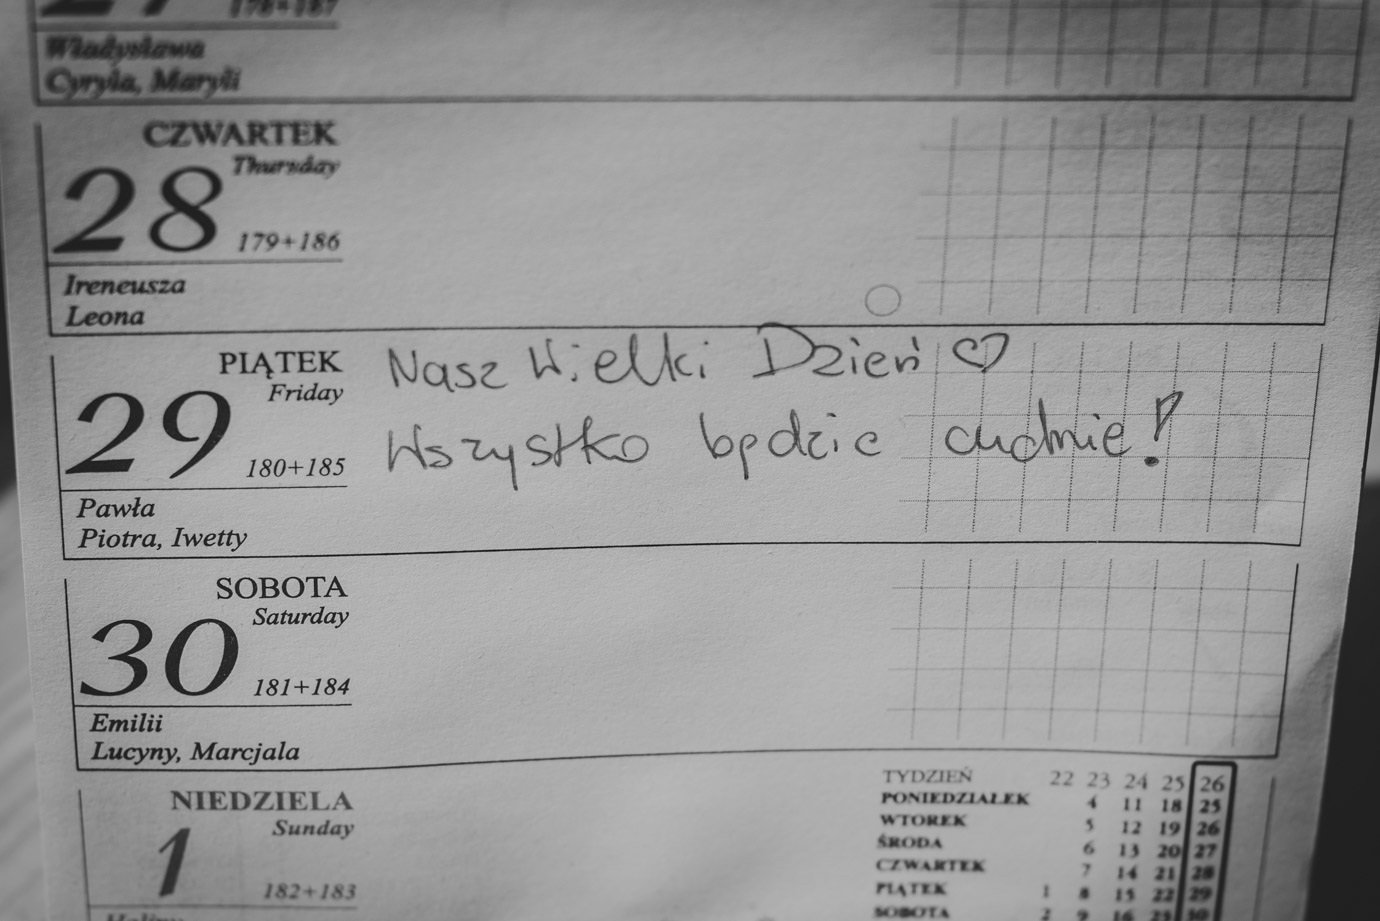 27
178+187
Władysława
Cyryla, Maryli
CZWARTEK
Thursday
28
179+186
Ireneusza
Leona
PIĄTEK
Friday
29
180+185
Pawła
Piotra, Iwetty
Nasz Wielki Dzień ♡
Wszystko będzie cudnie!
SOBOTA
Saturday
30
181+184
Emilii
Lucyny, Marcjala
NIEDZIELA
Sunday
1
182+183
Haliny
TYDZIEŃ 22 23 24 25 26
PONIEDZIAŁEK 4 11 18 25
WTOREK 5 12 19 26
ŚRODA 6 13 20 27
CZWARTEK 7 14 21 28
PIĄTEK 1 8 15 22 29
SOBOTA 2 9 16 23 30